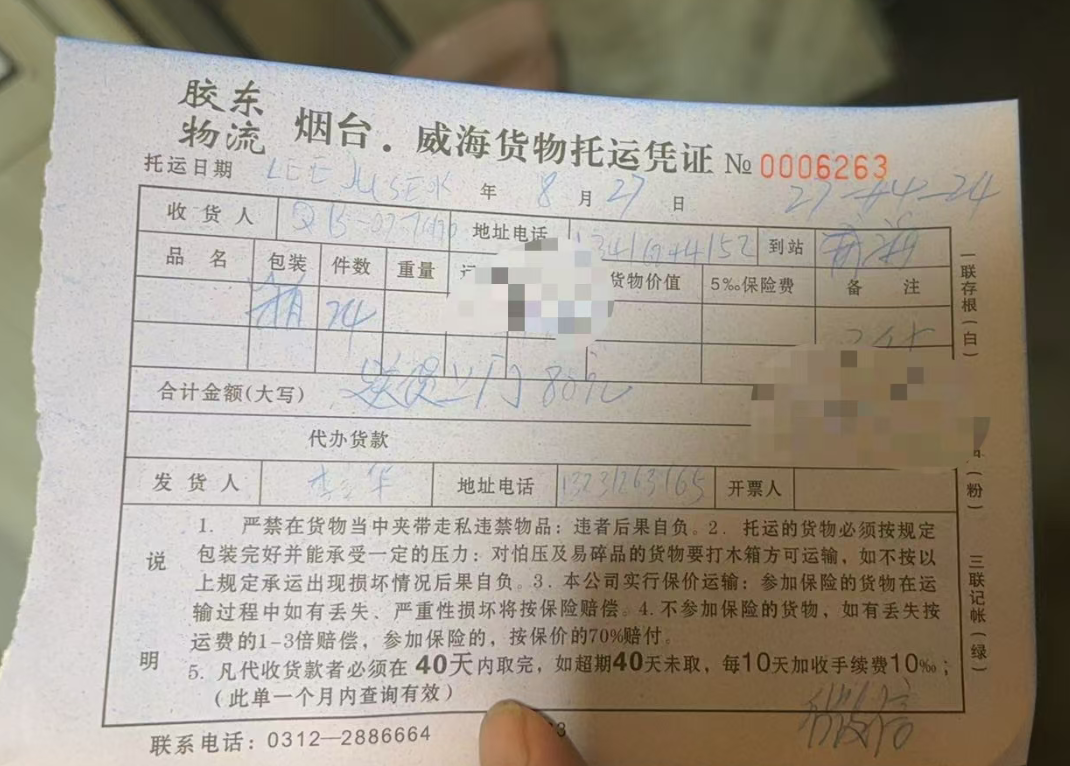 胶东
物流 烟台.威海货物托运凭证 № 0006263
托运日期 LEE 年 8 月 27 日 27-#4-24
收货人 地址电话 到站
品名 包装 件数 重量 货物价值 5‰保险费 备注
箱 24
合计金额(大写) 送货上门 80元
代办货款
发货人 李 华 地址电话 开票人
说明
1. 严禁在货物当中夹带走私违禁物品:违者后果自负。2. 托运的货物必须按规定
包装完好并能承受一定的压力:对怕压及易碎品的货物要打木箱方可运输,如不按以
上规定承运出现损坏情况后果自负。3.本公司实行保价运输:参加保险的货物在运
输过程中如有丢失、严重性损坏将按保险赔偿。4.不参加保险的货物,如有丢失按
运费的1-3倍赔偿,参加保险的,按保价的70%赔付。
5. 凡代收货款者必须在 40天内取完,如超期40天未取,每10天加收手续费10‰;
(此单一个月内查询有效)
联系电话:0312—2886664
一联存根(白)
(粉)
三联记帐(绿)